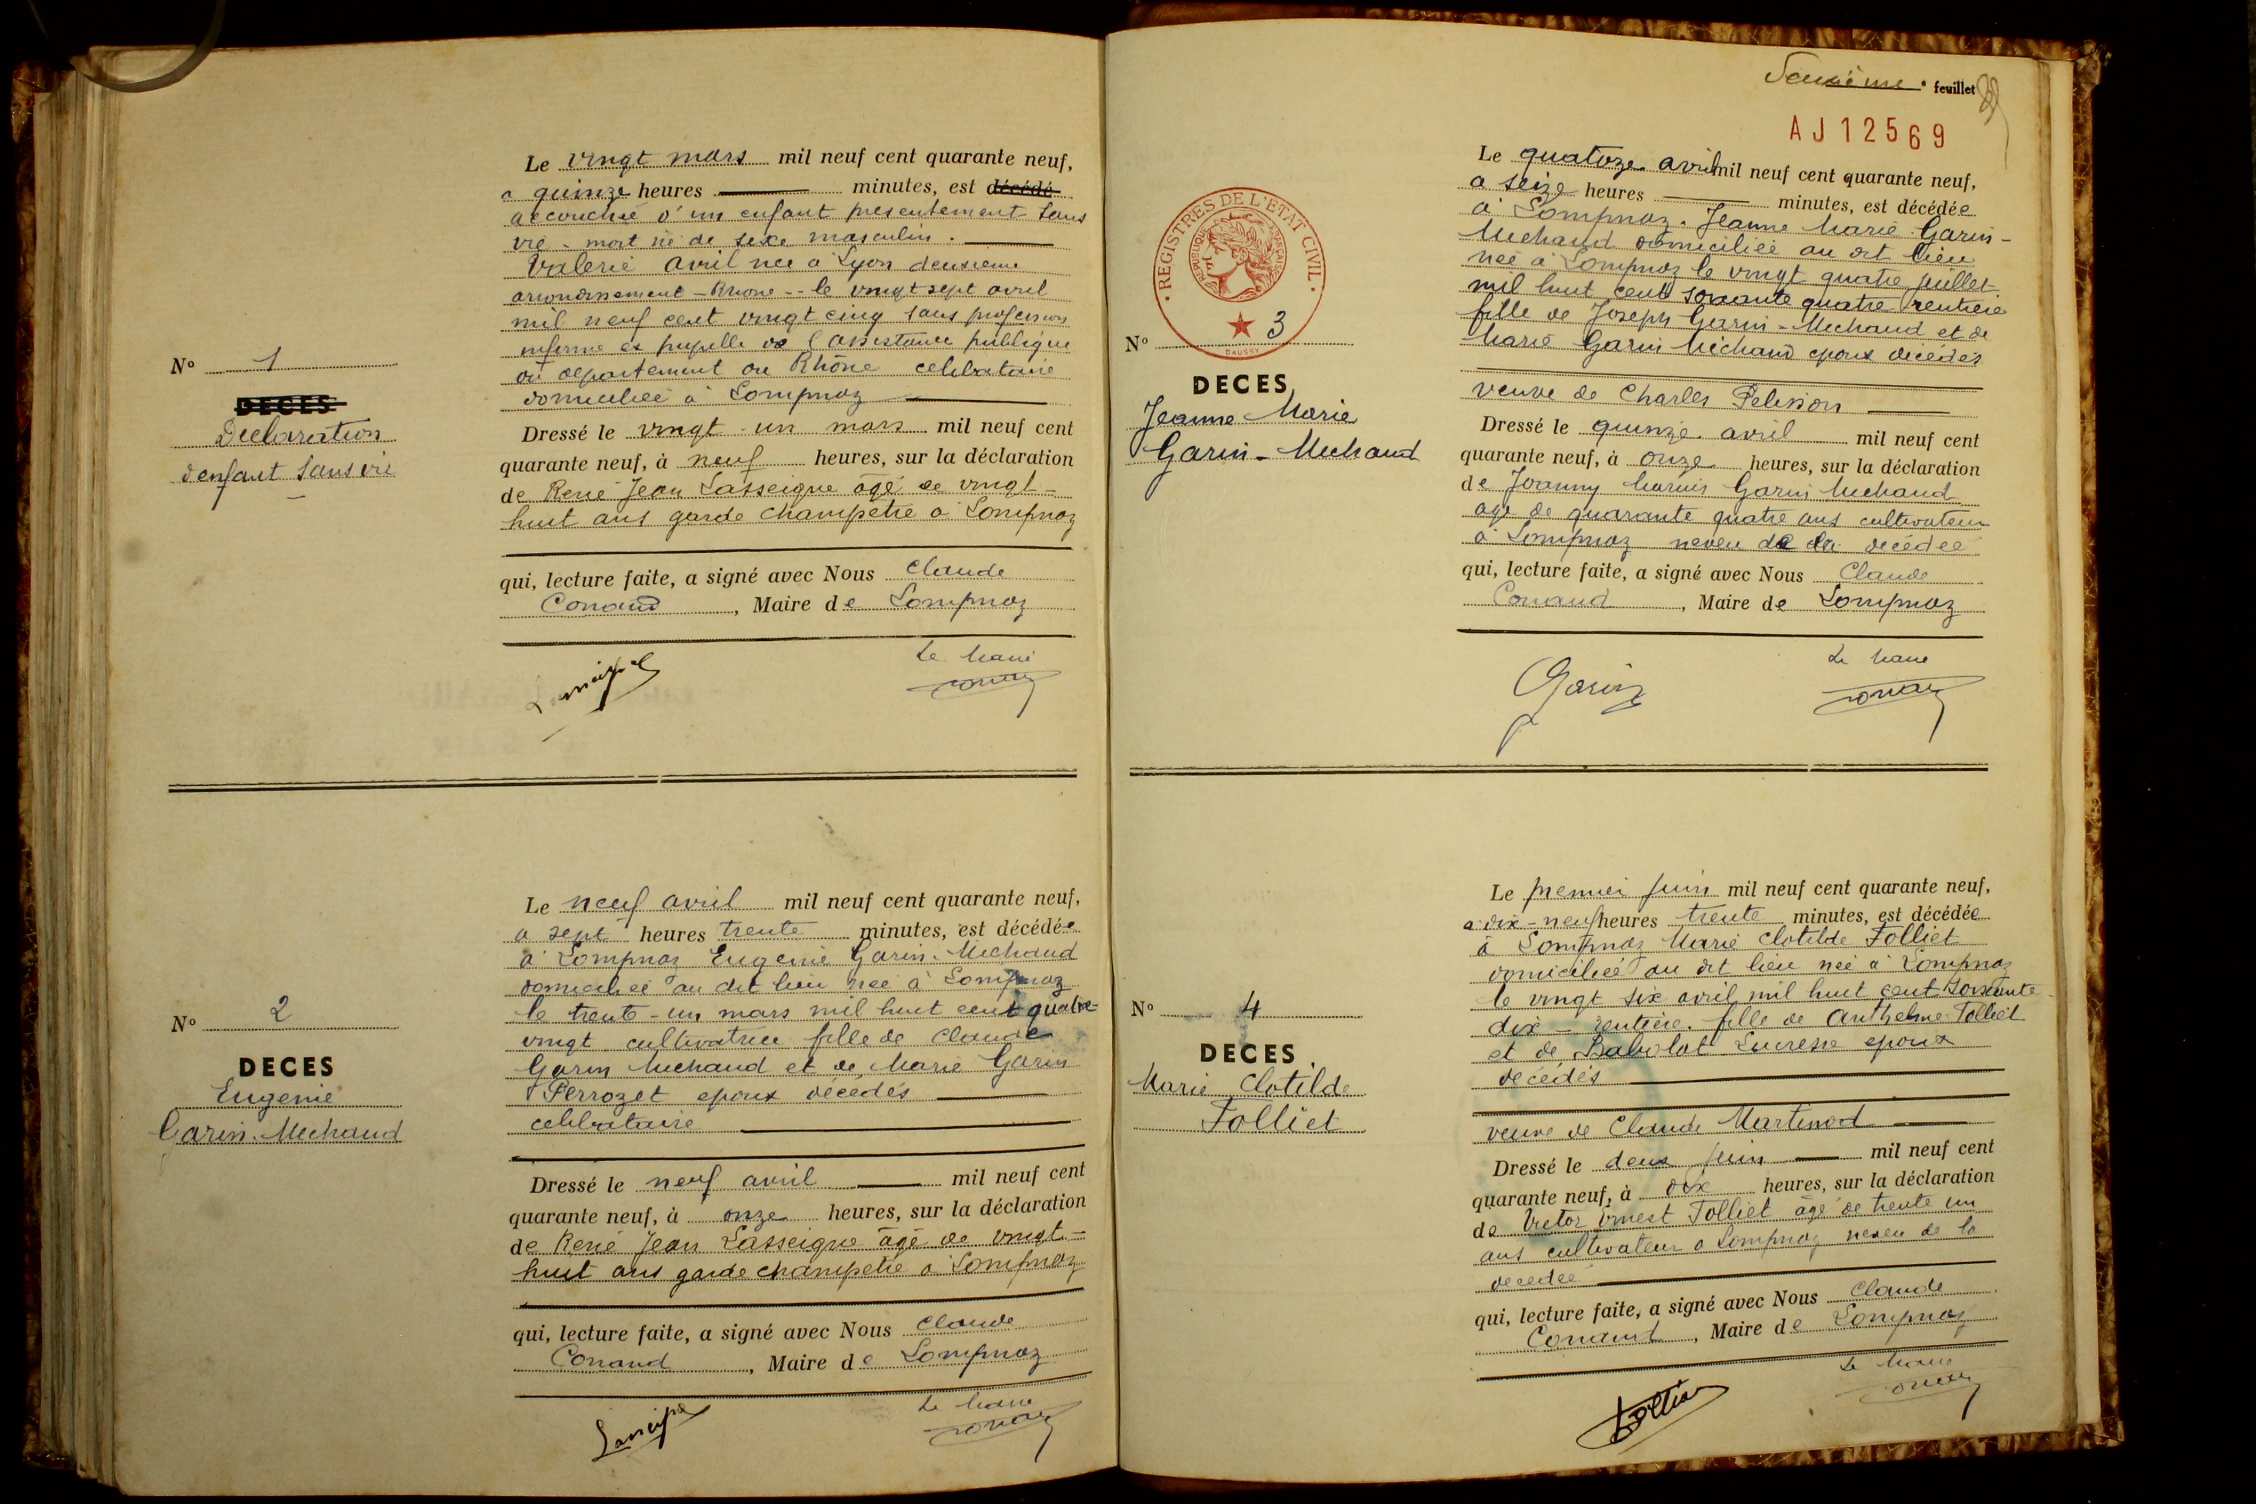 Le vingt mars mil neuf cent quarante neuf,
a quinze heures minutes, est décédé
accouchée d'un enfant présentement sans
vie - mort né de sexe masculin.
Valerie Avril née à Lyon deuxième
arrondissement - Rhône - le vingt sept avril
mil neuf cent vingt cinq sans profession
infirme ex pupille de l'assistance publique
du département du Rhône célibataire
domiciliée à Lompnaz
Dressé le vingt-un mars mil neuf cent
quarante neuf, à neuf heures, sur la déclaration
de René Jean Lasseigne âgé de vingt-
huit ans garde champetre à Lompnaz
qui, lecture faite, a signé avec Nous Claude
Conand, Maire de Lompnaz
Le Maire
Nº 1
DECES
Déclaration
d'enfant sans vie
Le neuf avril mil neuf cent quarante neuf,
a sept heures trente minutes, est décédée
à Lompnaz Eugenie Garin-Michaud
domiciliée au dit lieu née à Lompnaz
le trente-un mars mil huit cent quatre-
vingt cultivatrice fille de Claude
Garin Michaud et de Marie Garin
Perrozet epoux décédés
celibataire
Dressé le neuf avril mil neuf cent
quarante neuf, à onze heures, sur la déclaration
de René Jean Lasseigne âgé de vingt-
huit ans garde champetre à Lompnaz
qui, lecture faite, a signé avec Nous Claude
Conand, Maire de Lompnaz
Le Maire
Nº 2
DECES
Eugenie
Garin-Michaud
feuillet
AJ12569
REGISTRES DE L'ETAT CIVIL
REPUBLIQUE FRANCAISE
DAUSSY
Nº 3
DECES
Jeanne Marie
Garin-Michaud
Le quatorze avril mil neuf cent quarante neuf,
a seize heures minutes, est décédée
à Lompnaz. Jeanne Marie Garin-
Michaud domiciliée au dit lieu
née à Lompnaz le vingt quatre juillet
mil huit cent soixante quatre rentière
fille de Joseph Garin-Michaud et de
Marie Garin Michaud epoux décédés
veuve de Charles Pelisson
Dressé le quinze avril mil neuf cent
quarante neuf, à onze heures, sur la déclaration
de Joanny Marius Garin Michaud
age de quarante quatre ans cultivateur
à Lompnaz neveu de la décédée
qui, lecture faite, a signé avec Nous Claude
Conand, Maire de Lompnaz
Garin
Le Maire
Nº 4
DECES
Marie Clotilde
Folliet
Le premier juin mil neuf cent quarante neuf,
a dix-neuf heures trente minutes, est décédée
à Lompnaz Marie Clotilde Folliet
domiciliée au dit lieu née à Lompnaz
le vingt six avril mil huit cent soixante
dix - rentière. fille de Anthelme Folliet
et de Babolat Lucresse epoux
décédés
veuve de Claude Martinod
Dressé le deux juin mil neuf cent
quarante neuf, à dix heures, sur la déclaration
de Victor Ernest Folliet âgé de trente un
ans cultivateur à Lompnaz neveu de la
décédée
qui, lecture faite, a signé avec Nous Claude
Conand, Maire de Lompnaz
Le Maire